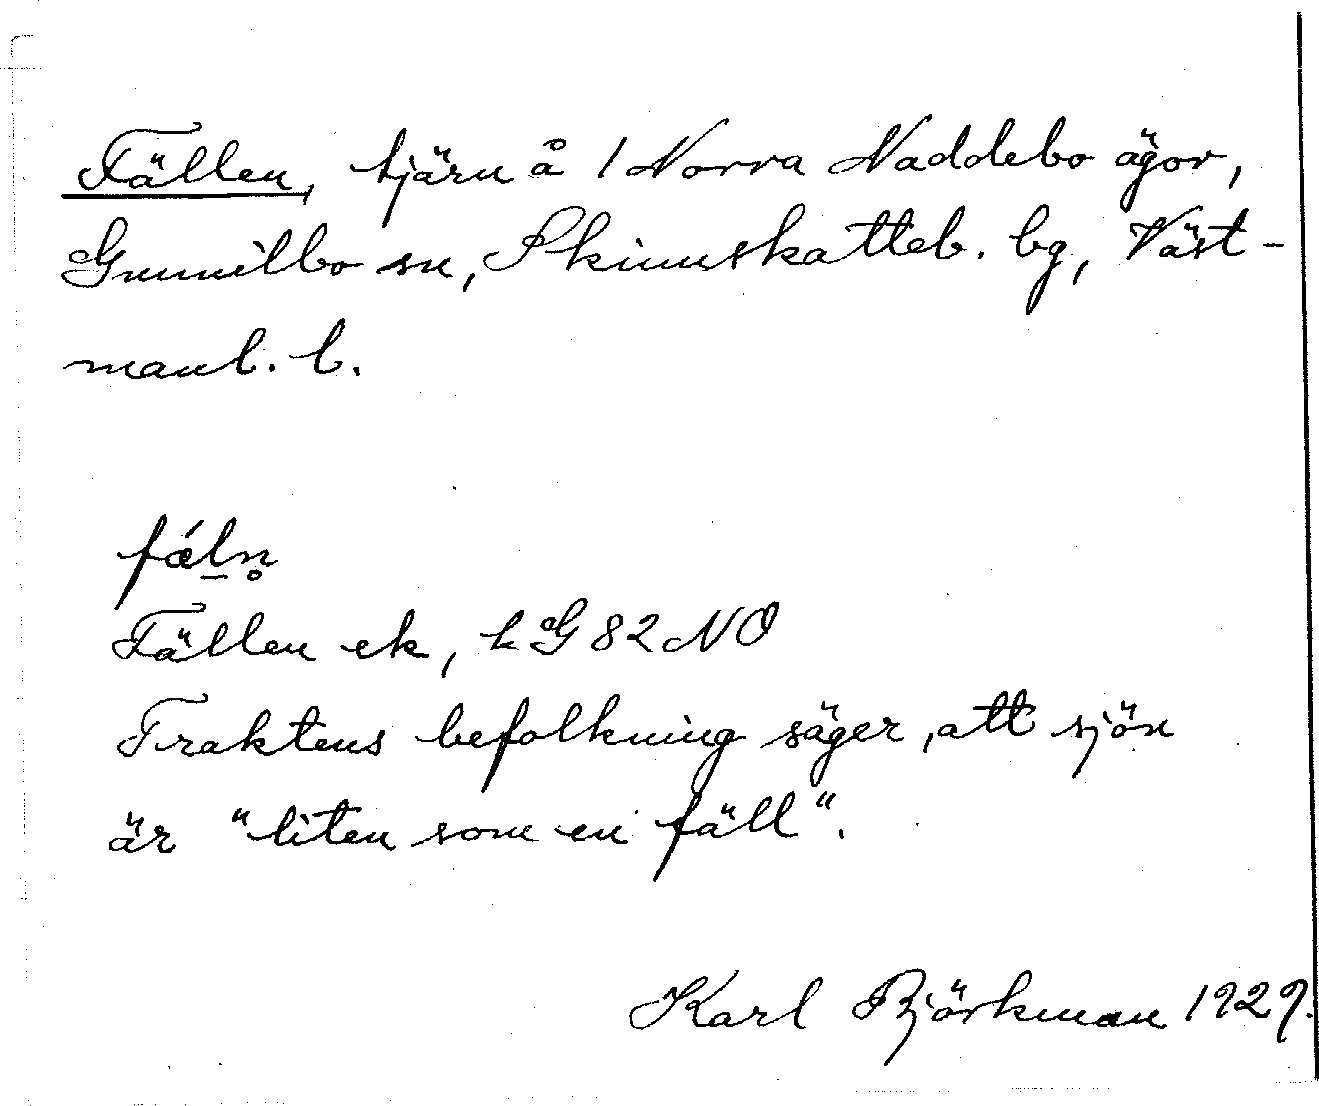 Fällen, tjärn å 1 Norra Naddebo ägor,
Gunnilbo sn, Skinnskatteb. bg, Väst-
manl. l.
fǽl̲n̥
Fällen ek, k G 82 NO
Traktens befolkning säger, att sjön
är "liten som en fäll".
Karl Björkman 1929.